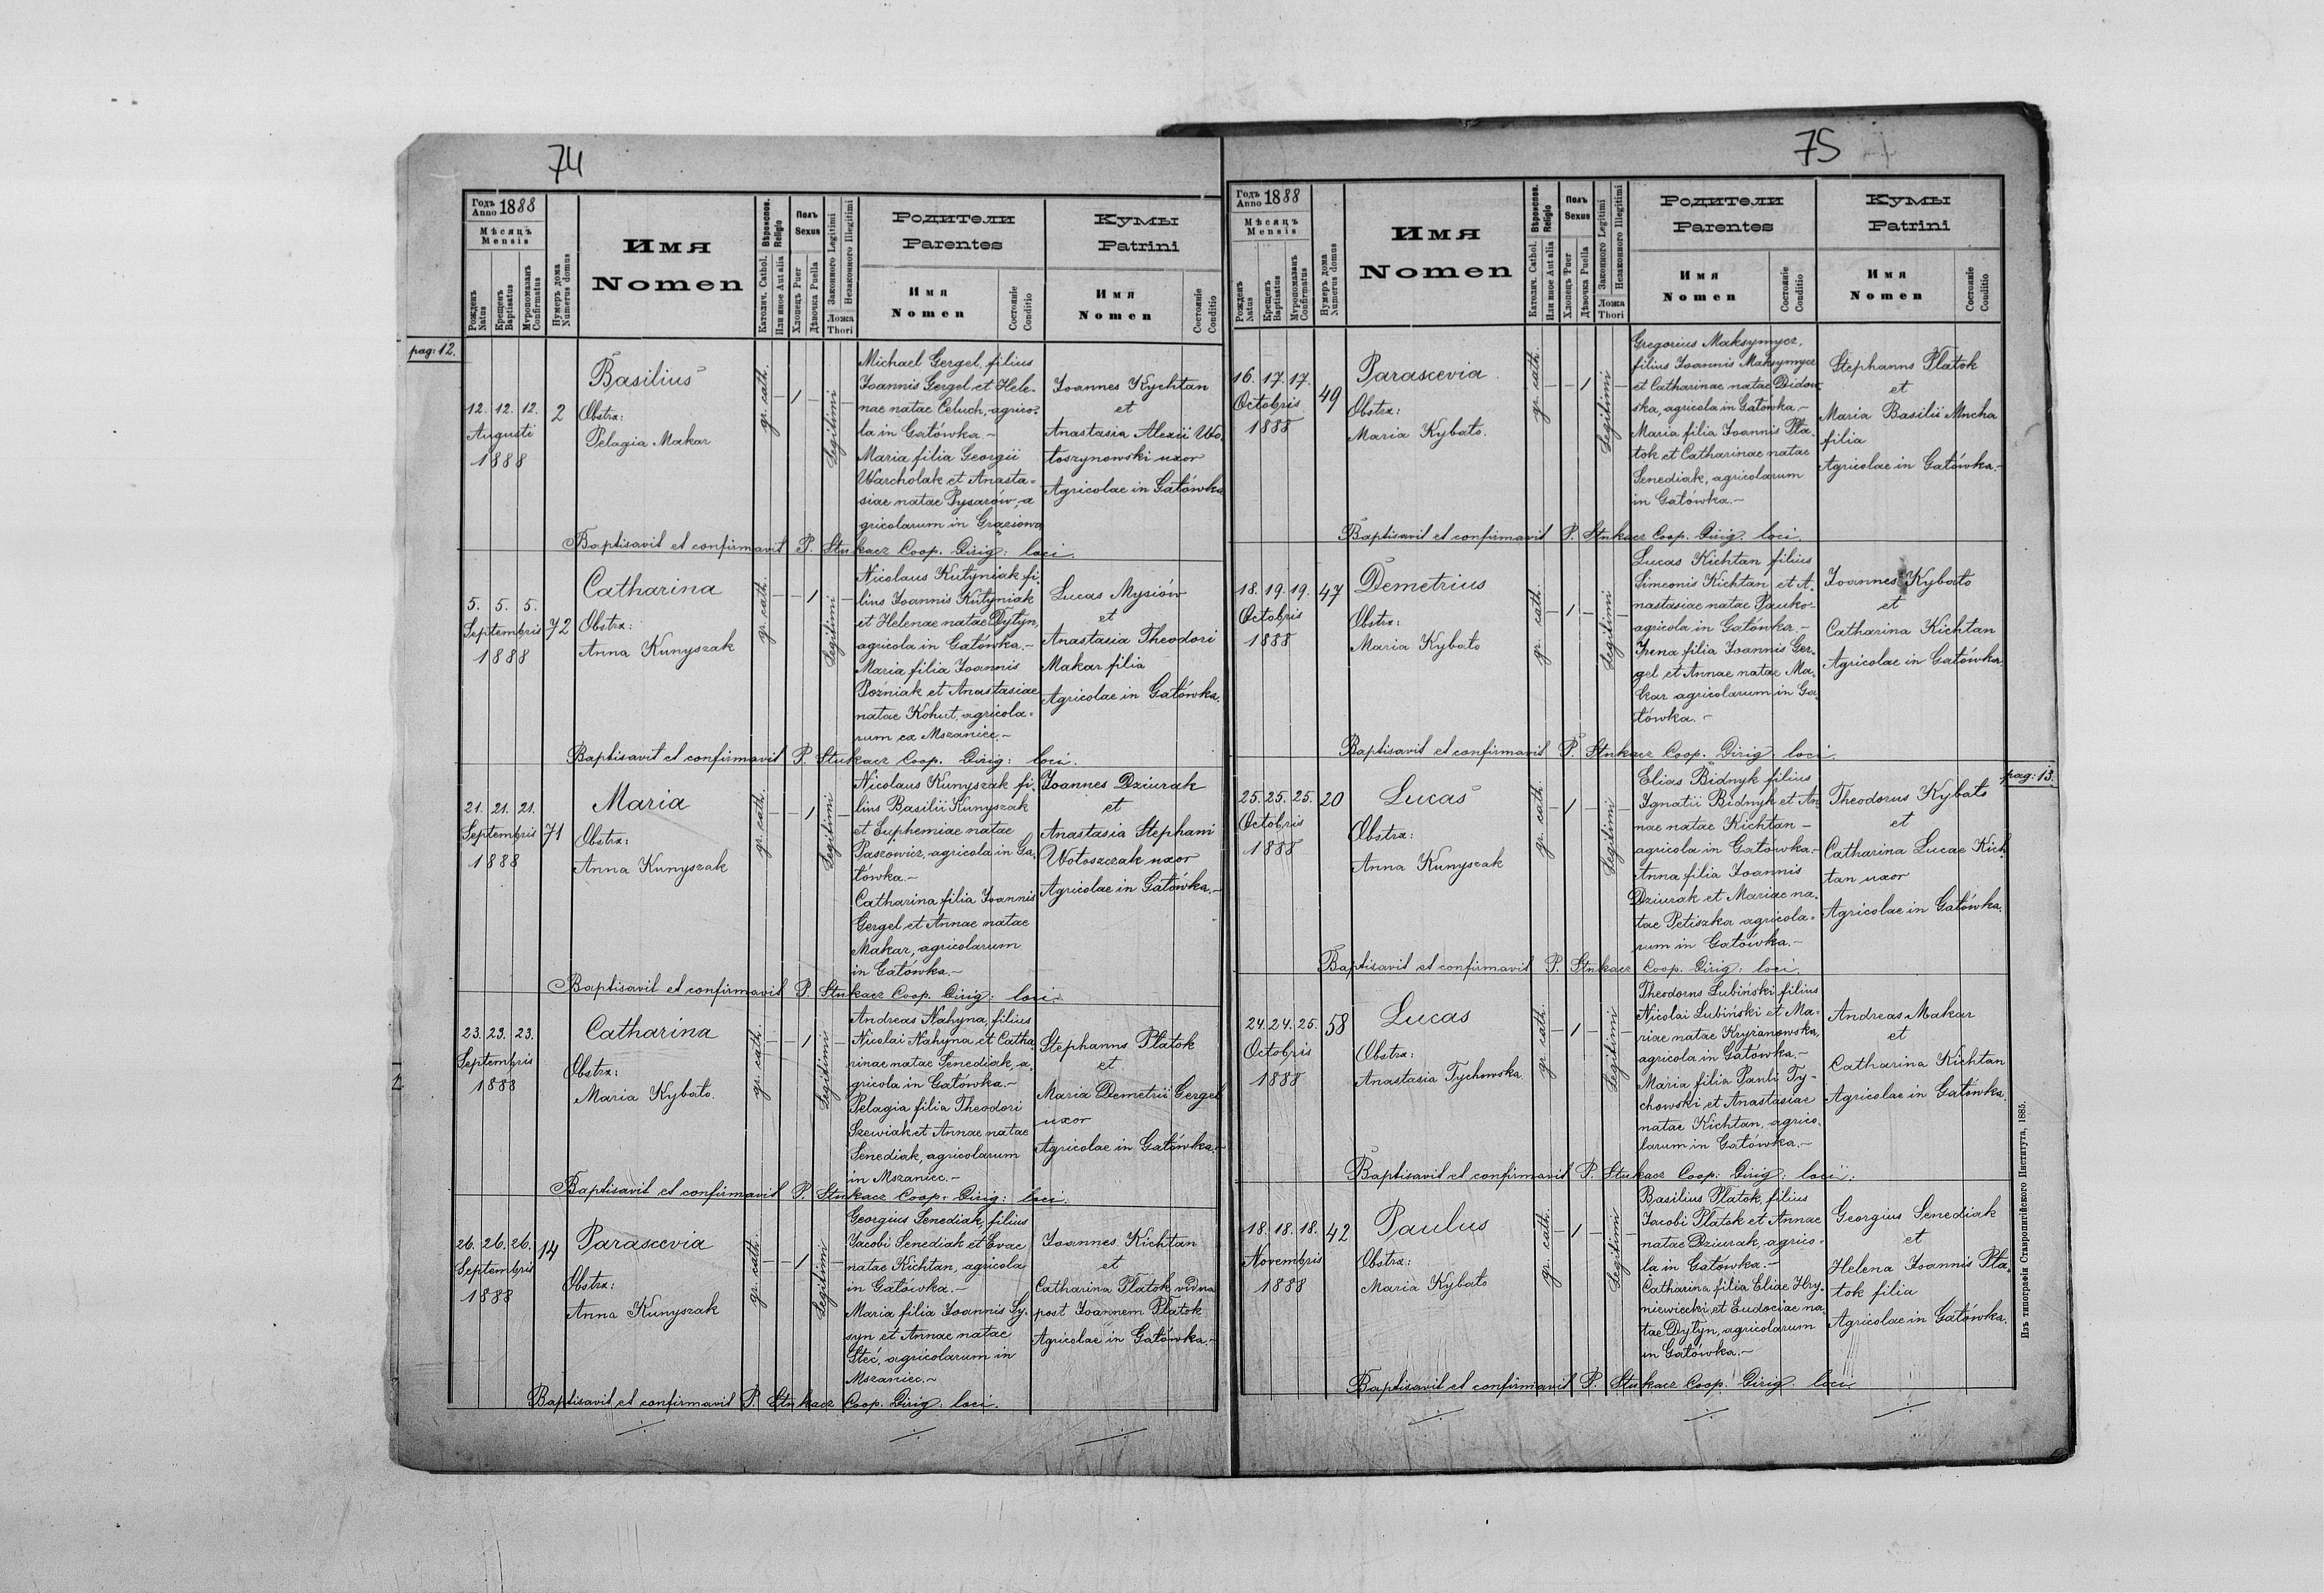 74
Годъ Anno 1888
Мѣсяцъ
Mensis
Рожденъ Natus
Крещенъ Baptisatus
Мѵропомазанъ Confirmatus
Нумеръ дома Numerus domus
Имя
Nomen
Вѣроиспов. Religio
Католич. Cathol.
Или иное Aut alia
Полъ Sexus
Хлопецъ Puer
Дѣвочка Puella
Законного Legitimi
Незаконного Illegitimi
Ложа Thori
Родители
Parentes
Имя
Nomen
Состояніе Conditio
Кумы
Patrini
Имя
Nomen
Состояніе Conditio
pag: 12.
12. 12. 12.
Augusti
1888
2
Basilius
Obstrx:
Pelagia Makar
gr. cath.
1
Legitimi
Michael Gergel, filius
Joannis Gergel et Hele-
nae natae Celuch, agrico-
la in Gałówka.-
Maria filia Georgii
Warcholak et Anasta-
siae natae Pysarów, a
gricolarum in Grąziowa
Joannes Kychtan
et
Anastasia Alexii Wo-
łoszynowski uxor
Agricolae in Gałówka
Baptisavit et confirmavit P. Stukacz Coop. Dirig: loci.
5. 5. 5.
Septembris
1888
72
Catharina
Obstrx:
Anna Kunyszak
gr. cath.
1
Legitimi
Nicolaus Kutyniak fi-
lius Joannis Kutyniak
et Helenae natae Dytyn,
agricola in Gałówka.-
Maria filia Joannis
Poźniak et Anastasiae
natae Kohut, agricola-
rum ex Mszaniec.-
Lucas Mysiów
et
Anastasia Theodori
Makar filia
Agricolae in Gałówka.
Baptisavit et confirmavit P. Stukacz Coop. Dirig: loci.
21. 21. 21.
Septembris
1888
71
Maria
Obstrx:
Anna Kunyszak
gr. cath.
1
Legitimi
Nicolaus Kunyszak fi-
lius Basilii Kunyszak
et Euphemiae natae
Paszowicz, agricola in Ga-
łówka.-
Catharina filia Joannis
Gergel et Annae natae
Makar, agricolarum
in Gałówka.-
Joannes Dziurak
et
Anastasia Stephani
Wołoszczak uxor
Agricolae in Gałówka.-
Baptisavit et confirmavit P. Stukacz Coop. Dirig: loci.
23. 23. 23.
Septembris
1888
Catharina
Obstrx:
Maria Kybało.
gr. cath.
1
Legitimi
Andreas Nahyna, filius
Nicolai Nahyna et Catha-
rinae natae Senediak, a-
gricola in Gałówka.-
Pelagia filia Theodori
Szewiak et Annae natae
Senediak, agricolarum
in Mszaniec.-
Stephanus Płatok
et
Maria Demetrii Gergel
uxor
Agricolae in Gałówka.-
Baptisavit et confirmavit P. Stukacz Coop. Dirig: loci.
26. 26. 26.
Septembris
1888
14
Parascevia
Obstrx:
Anna Kunyszak
gr. cath.
1
Legitimi
Georgius Senediak, filius
Jacobi Senediak et Evae
natae Kichtan, agricola
in Gałówka.-
Maria filia Joannis Sy-
syn et Annae natae
Steć, agricolarum in
Mszaniec.-
Joannes Kichtan
et
Catharina Płatok vidua
post Joannem Płatok
Agricolae in Gałówka.-
Baptisavit et confirmavit P. Stukacz Coop. Dirig: loci.
75
Годъ Anno 1888
Мѣсяцъ
Mensis
Рожденъ Natus
Крещенъ Baptisatus
Мѵропомазанъ Confirmatus
Нумеръ дома Numerus domus
Имя
Nomen
Вѣроиспов. Religio
Католич. Cathol.
Или иное Aut alia
Полъ Sexus
Хлопецъ Puer
Дѣвочка Puella
Законного Legitimi
Незаконного Illegitimi
Ложа Thori
Родители
Parentes
Имя
Nomen
Состояніе Conditio
Кумы
Patrini
Имя
Nomen
Состояніе Conditio
16. 17. 17.
Octobris
1888
49
Parascevia
Obstrx:
Maria Kybało.
gr. cath.
1
Legitimi
Gregorius Maksymycz,
filius Joannis Maksymycz
et Catharinae natae Didow-
ska, agricola in Gałówka.-
Maria filia Joannis Pła-
tok et Catharinae natae
Senediak, agricolarum
in Gałówka.-
Stephanus Płatok
et
Maria Basilii Mucha
filia
Agricolae in Gałówka.-
Baptisavit et confirmavit P. Stukacz Coop. Dirig. loci.
18. 19. 19.
Octobris
1888
47
Demetrius
Obstrx:
Maria Kybało
gr. cath.
1
Legitimi
Lucas Kichtan filius
Simeonis Kichtan et A-
nastasiae natae Pauko-
agricola in Gałówka.-
Irena filia Joannis Ger-
gel et Annae natae Ma-
kar agricolarum in Ga-
łówka.-
Joannes Kybało
et
Catharina Kichtan
Agricolae in Gałówka
Baptisavit et confirmavit P. Stukacz Coop. Dirig: loci.
pag: 13.
25. 25. 25.
Octobris
1888
20
Lucas
Obstrx:
Anna Kunyszak
gr. cath.
1
Legitimi
Elias Bidnyk filius
Ignatii Bidnyk et An
nae natae Kichtan -
agricola in Gałówka.-
Anna filia Joannis
Dziurak et Mariae na-
tae Petiszka agricola-
rum in Gałówka.-
Theodorus Kybało
et
Catharina Lucae Kich-
tan uxor
Agricolae in Gałówka.
Baptisavit et confirmavit P. Stukacz Coop. Dirig: loci.
24. 24. 25.
Octobris
1888
58
Lucas
Obstrx:
Anastasia Tychowska
gr. cath.
1
Legitimi
Theodorus Łubiński filius
Nicolai Łubiński et Ma-
riae natae Kryżanowska,
agricola in Gałówka.-
Maria filia Pauli Ty-
chowski et Anastasiae
natae Kichtan, agrico-
larum in Gałówka.-
Andreas Makar
et
Catharina Kichtan
Agricolae in Gałówka.
Baptisavit et confirmavit P. Stukacz Coop: Dirig: loci:
18. 18. 18.
Novembris
1888
42
Paulus
Obstrx:
Maria Kybało
gr. cath.
1
Legitimi
Basilius Płatok, filius
Jacobi Płatok et Annae
natae Dziurak, agrico-
la in Gałówka.-
Catharina, filia Eliae Hry-
niewiecki et Eudociae na-
tae Dytyn, agricolarum
in Gałówka.-
Georgius Senediak
et
Helena Joannis Pła-
tok filia
Agricolae in Gałówka.
Baptisavit et confirmavit P. Stukacz Coop. Dirig. loci
Изъ типографіи Ставропигійского Института, 1885.